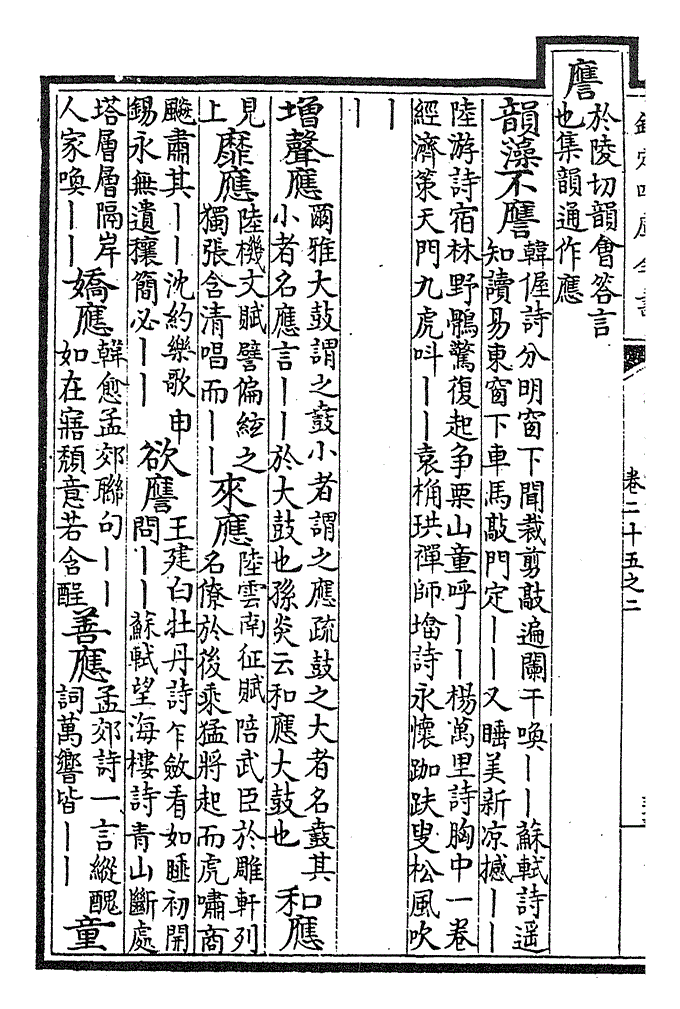 欽定四庫全書
卷二十五之二
譍
於陵切韻會答言
也集韻通作應
韻藻不譍
韓偓詩分明窗下聞裁剪敲遍闌干喚丨丨蘇軾詩遥
知讀易東窗下車馬敲門定丨丨又睡美新凉撼丨丨
陸游詩宿林野鶻驚復起争栗山童呼丨丨楊萬里詩胸中一卷
經濟策天門九虎呌丨丨袁桷珙禪師墖詩永懷跏趺叟松風吹
丨
丨
增聲應
爾雅大鼓謂之鼖小者謂之應疏鼓之大者名鼖其
小者名應言丨丨於大鼓也孫炎云和應大鼓也
和應
見
上
靡應
陸機文賦譬偏絃之
獨張含清唱而丨丨
來應
陸雲南征賦陪武臣於雕軒列
名僚於後乘猛將起而虎嘯商
飈肅其丨丨沈約樂歌申
錫永無遺穰簡必丨丨
欲譍
王建白牡丹詩乍斂看如睡初開
問丨丨蘇軾望海樓詩青山斷處
塔層層隔岸
人家喚丨丨
嬌應
韓愈孟郊聯句丨丨
如在寤頽意若含酲
善應
孟郊詩一言縱醜
詞萬響皆丨丨
童